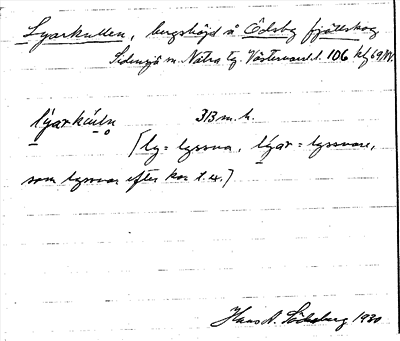 Lyarkullen, bergshöjd å Ödsby fjällskog
Sidensjö m. Nätra tg. Västernorrl. l. 106
lyarkúḷn 313 m. h.
[ly = lyssna, lýar = lyssnare,
som lyssnar efter kor t. ex.]
Hans A. Söderberg 1930